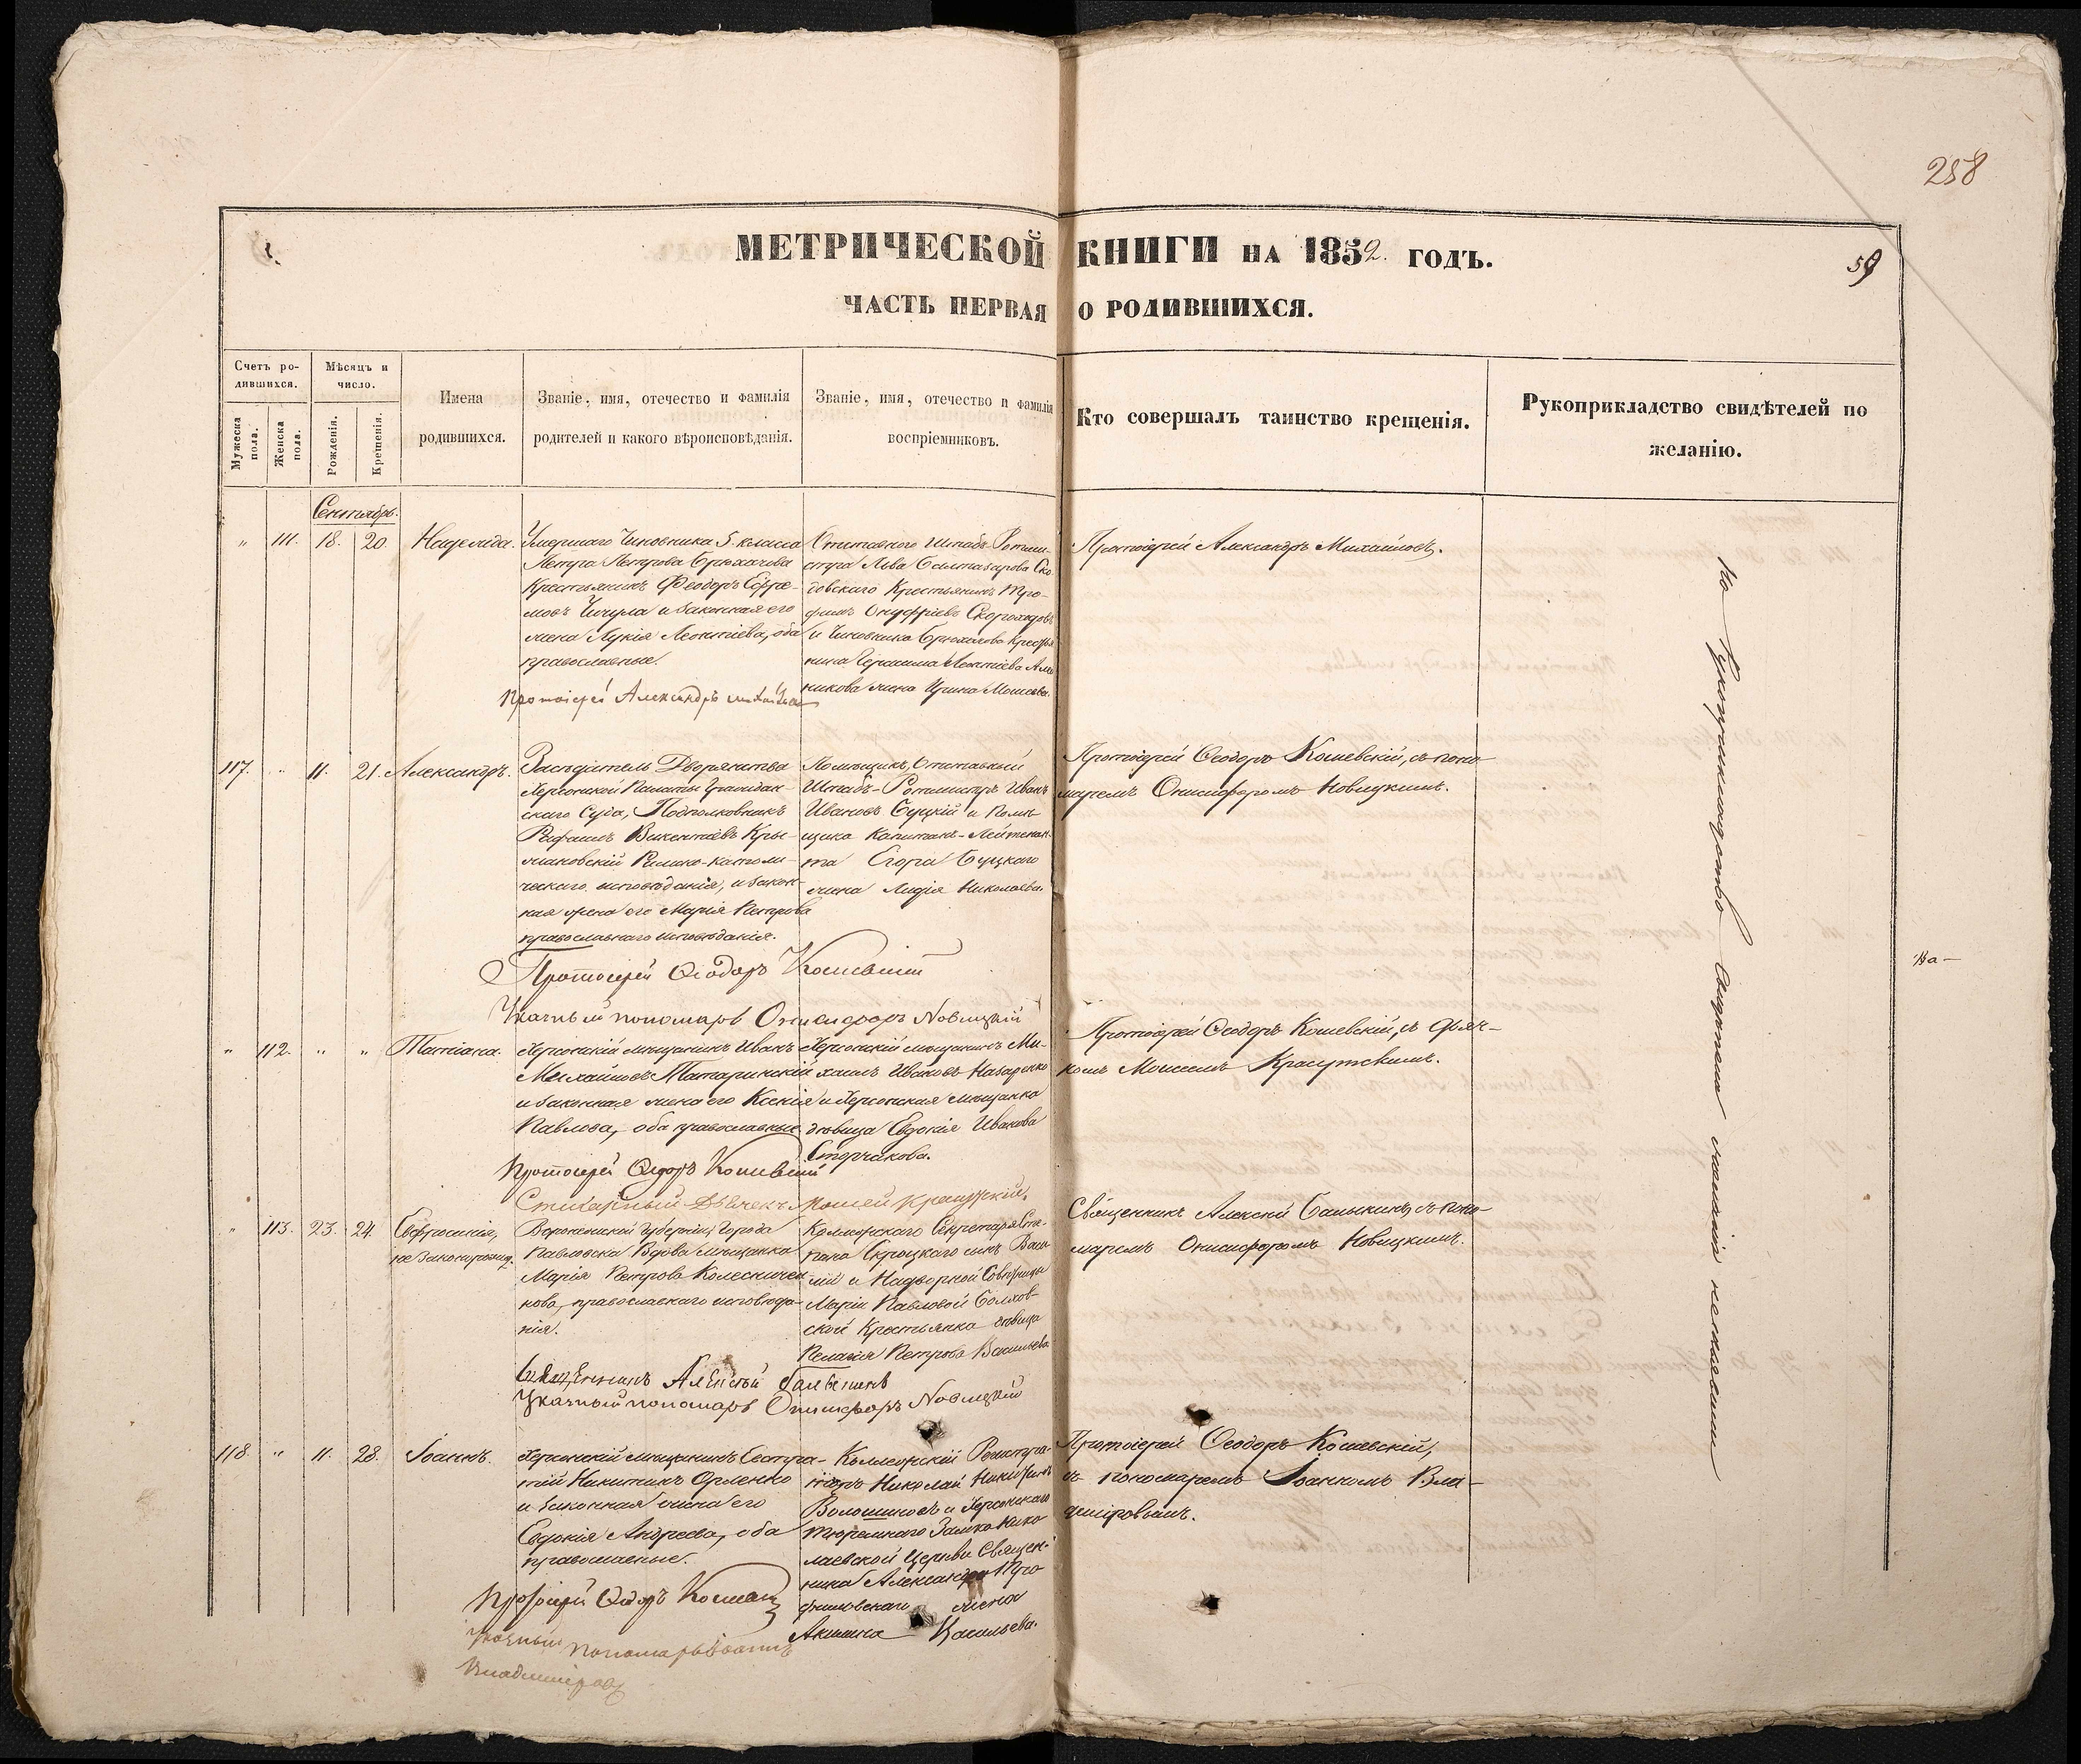 258
МЕТРИЧЕСКОЙ КНИГИ НА 1852. ГОДЪ.
59
ЧАСТЬ ПЕРВАЯ О РОДИВШИХСЯ.
Счетъ ро-
дившихся.
Мужеска пола.
Женска пола.
Мѣсяцъ и
число.
Рожденія.
Крещенія.
Имена
родившихся.
Званіе, имя, отечество и фамилія
родителей и какого вѣроисповѣданія.
Званіе, имя, отечество и фамилія
воспріемниковъ.
Кто совершалъ таинство крещенія.
Рукоприкладство свидѣтелей по
желанію.
Сентябрь.
" 111. 18. 20. Надежда.
Умершаго Чиновника 5. класса
Петра Петрова Брюхачова
Крестьянинъ Феодоръ Ефре-
мовъ и законная его
жена Лукія Леонтіева, оба
православные.
Протоіерей Александръ
Отставного Штабъ-Ротми-
стра Льва Балтазарова Ска-
довскаго Крестьянинъ Тро-
фимъ Онуфріевъ Скороходовъ
и Чиновника Брюхачова Крестья
нина Герасима Леонтіева
жена Ирина Моисеева.
Протоіерей Александръ Михайловъ.
117. " 11. 21. Александръ.
Засѣдатель Дворянства
Херсонской Палаты Граждан-
скаго Суда, Подполковникъ
Рафаилъ Викентіевъ Кры-
жановскій Римско-католи-
ческаго исповѣданія, и закон-
ная жена его Марія Петрова
православнаго исповѣданія.
Протоіерей Ѳеодоръ Кошевскій
Указный пономарь Онисифоръ Новицкій
Помѣщикъ, Отставной
Штабъ-Ротмистръ Иванъ
Ивановъ Буцкій и Помѣ-
щика Капитанъ-Лейтенан-
та Егора Буцкаго
жена Лидія Николаева.
Протоіерей Ѳеодоръ Кошевскій, съ поно-
маремъ Онисифоромъ Новицкимъ.
" 112. " " Татіана.
Херсонскій мѣщанинъ Иванъ
Михайловъ Татаринскій
и законная жена его Ксенія
Павлова, оба православные.
Протоіерей Ѳеодоръ Кошевскій
Стихарный Дьячекъ Моисей Красутскій.
Херсонскій мѣщанинъ Ми-
хаилъ Ивановъ Назаренко
и Херсонская мѣщанка
дѣвица Евдокія Иванова
Сторчакова.
Протоіерей Ѳеодоръ Кошевскій, съ дьяч-
комъ Моисеемъ Красутскимъ.
" 113. 23. 24. Евфросинія,
незаконорожд.
Воронежской Губерніи, Города
Павловска Вдова мѣщанка
Марія Петрова Колеснични
кова, православнаго исповѣда-
нія.
Священникъ Алексѣй Балыкинъ
Указный пономарь Онисифоръ Новицкій
Коллежскаго Секретаря Сте-
пана сынъ Васи-
лій и Надворной Совѣтницы
Маріи Павловой Болхов-
ской Крестьянка дѣвица
Пелагія Петрова Васильева.
Священникъ Алексѣй Балыкинъ, съ поно-
маремъ Онисифоромъ Новицкимъ.
118. " 11. 28. Іоаннъ.
Херсонскій мѣщанинъ Евстра-
тій Никитинъ Орленко
и законная жена его
Евдокія Андреева, оба
православные.
Протоіерей Ѳеодоръ Кошевскій
Указный пономарь Іоаннъ
Владиміровъ
Коллежскій Регистра-
торъ Николай Никитинъ
Волошиновъ и Херсонскаго
тюремнаго Замка Нико
лаевской Церкви Священ-
ника Александра Тро
фимовскаго жена
Акилина Васильева.
Протоіерей Ѳеодоръ Кошевскій,
съ пономаремъ Іоанномъ Вла-
диміровымъ.
Къ рукоприкладству свидѣтели желанія не изъявили
На —